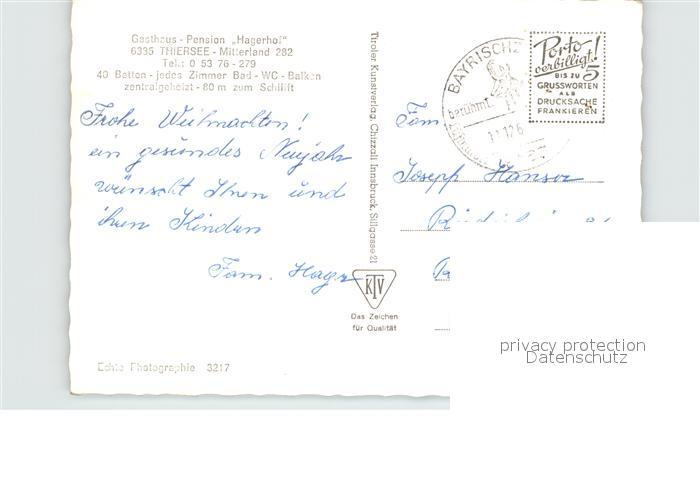 Gasthaus - Pension „Hagerhof"
6335 THIERSEE - Mitterland 282
Tel.: 0 53 76 - 279
40 Betten - jedes Zimmer Bad - WC - Balkon
zentralgeheizt - 80 m zum Schilift
Frohe Weihnachten!
ein gesundes Neujahr
wünscht Ihnen und
ihren Kindern
Fam. Hager
Echte Photographie 3217
Tiroler Kunstverlag, Chizzali Innsbruck, Sillgasse 21
KTV
Das Zeichen
für Qualität
BAYRISCHZ
berühmt
12.6
Porto
verbilligt!
BIS ZU 5
GRUSSWORTEN
ALS
DRUCKSACHE
FRANKIEREN
Fam
Joseph Hanser
privacy protection
Datenschutz